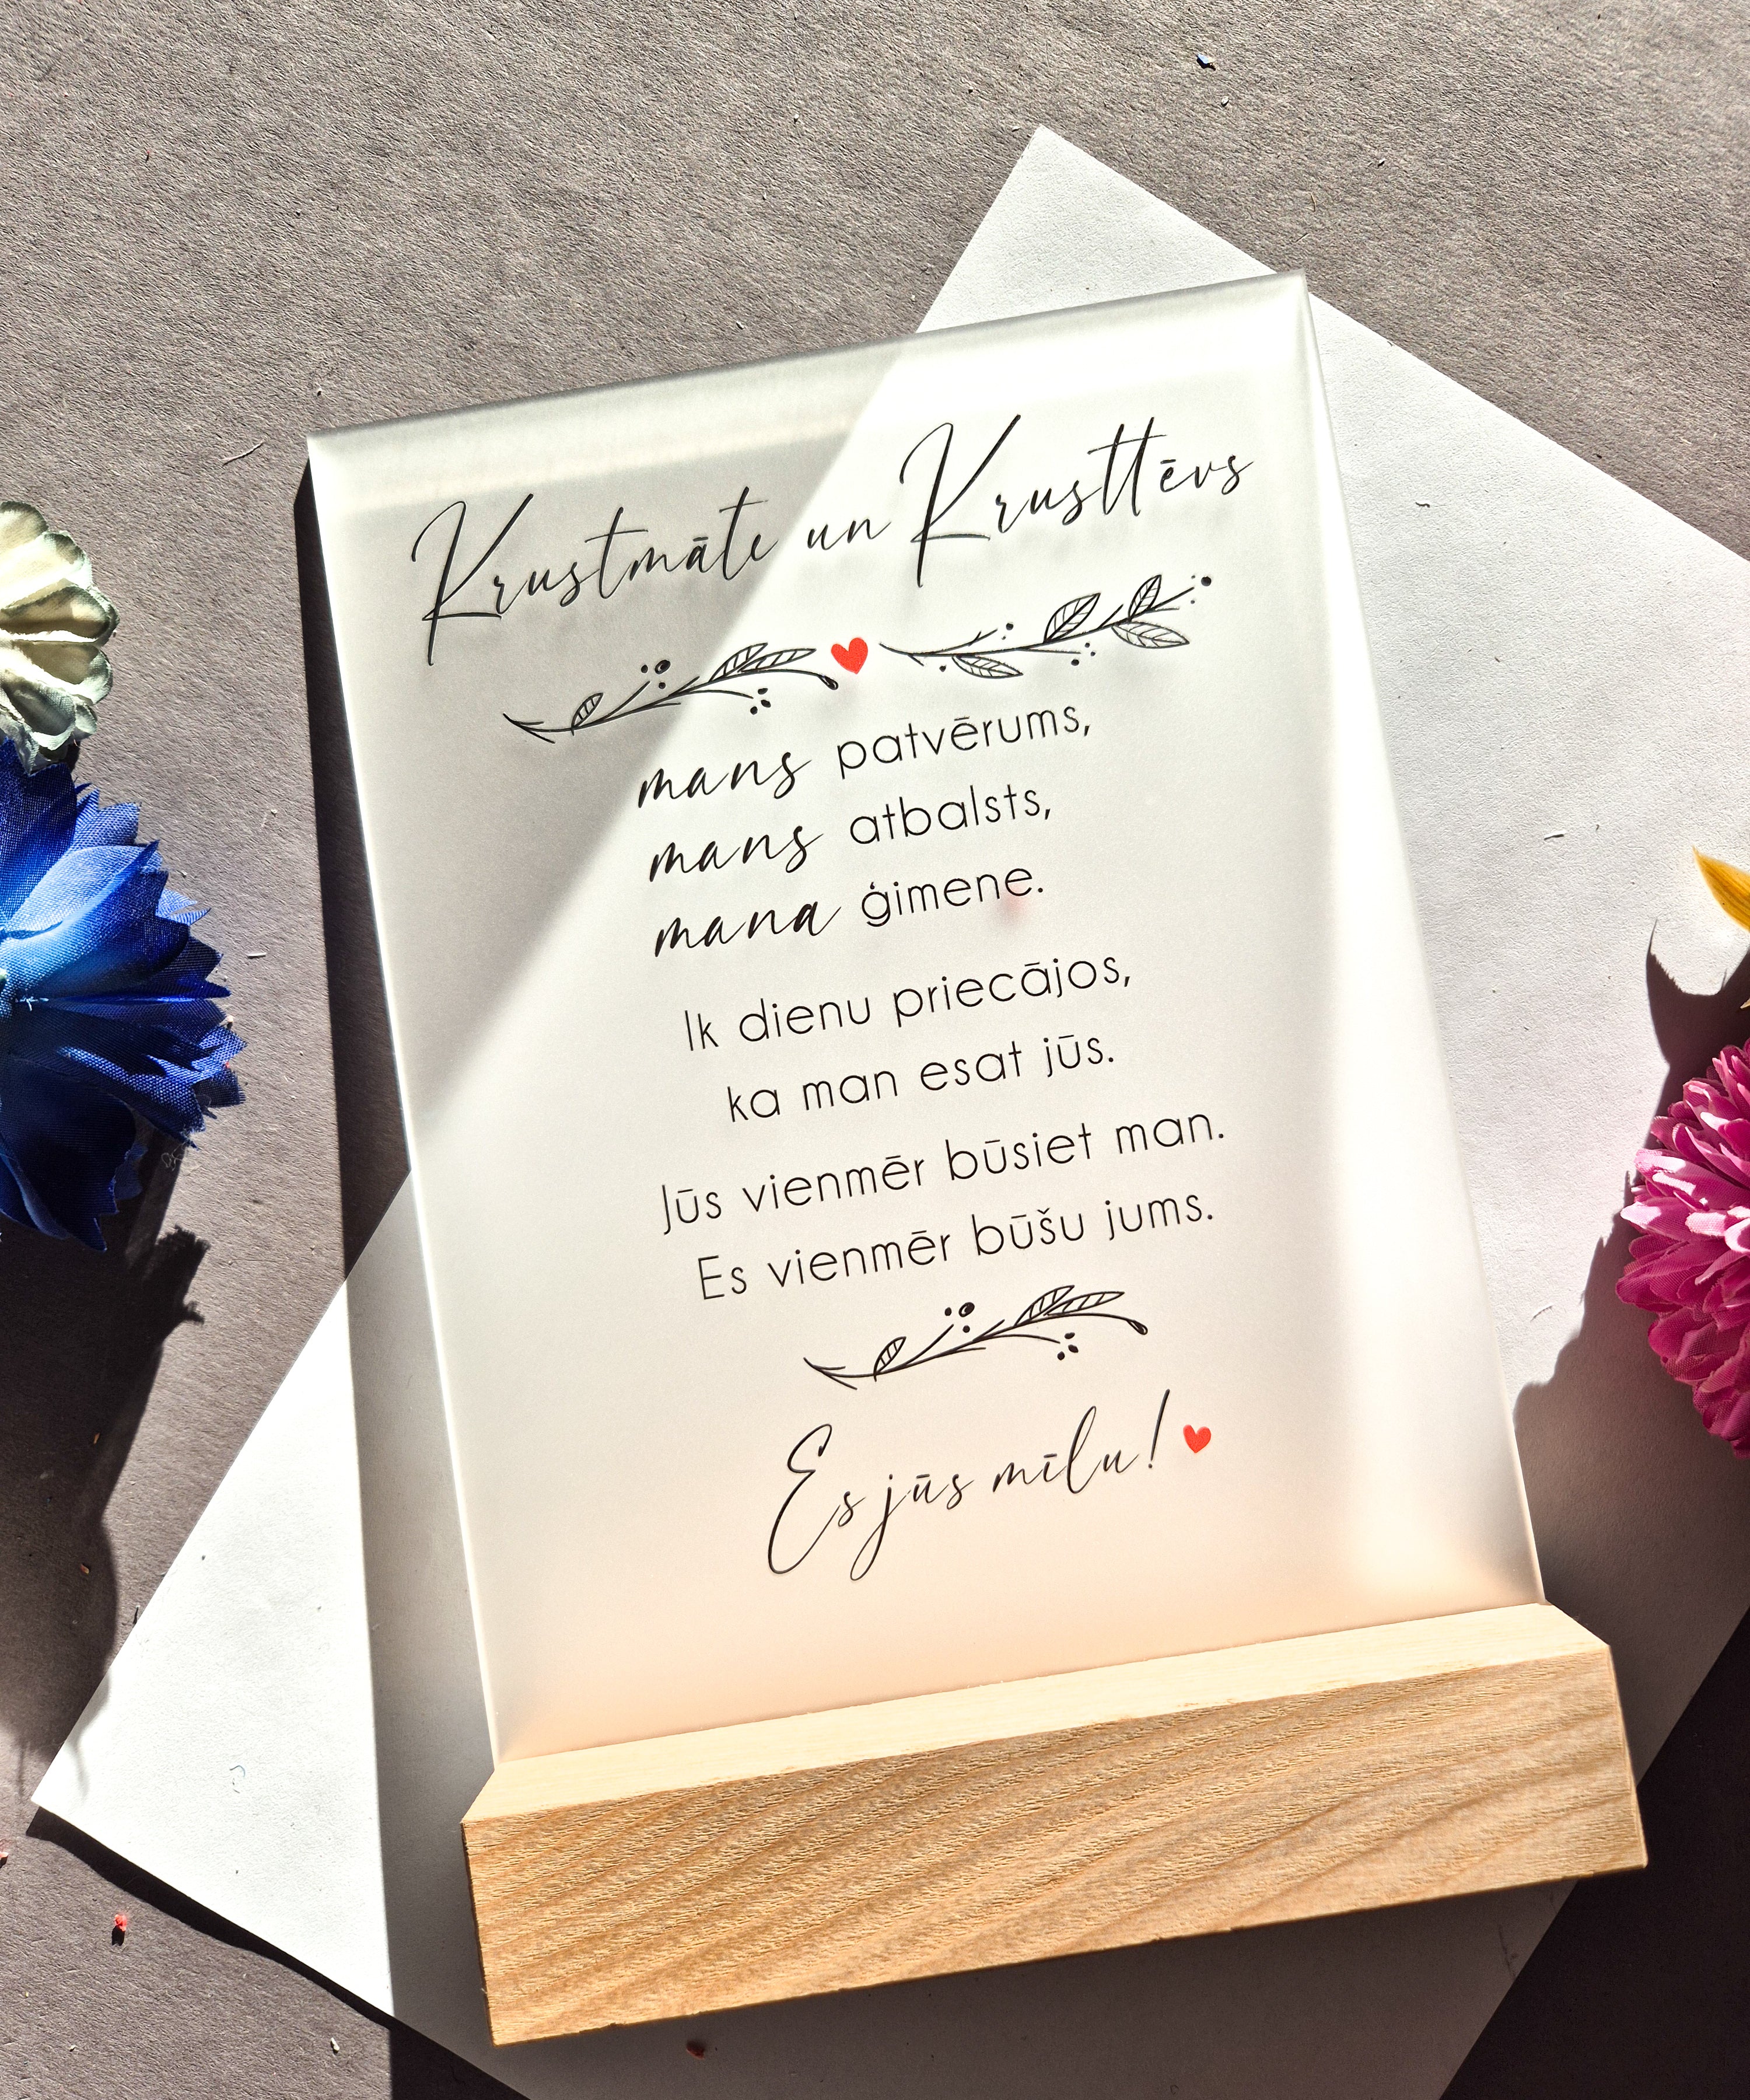 Krustmāte un Krusttēvs
mans patvērums,
mans atbalsts,
mana ģimene.
Ik dienu priecājos,
ka man esat jūs.
Jūs vienmēr būsiet man.
Es vienmēr būšu jums.
Es jūs mīlu!